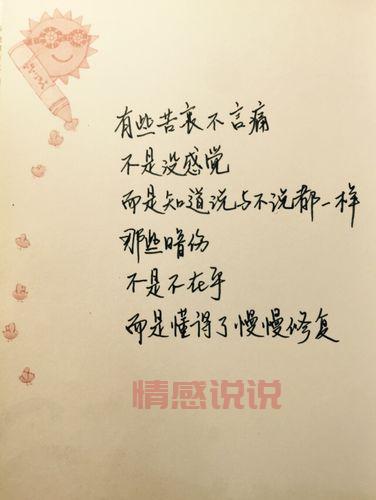 有些苦衷不言痛
不是没感觉
而是知道说与不说都一样
那些暗伤
不是不在乎
而是懂得了慢慢修复
情感说说